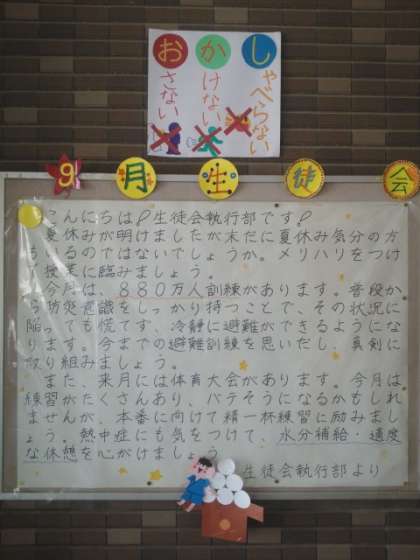 おさない
かけない
しゃべらない
9月生徒会
こんにちは!生徒会執行部です!
夏休みが明けましたが未だに夏休み気分の方
もいるのではないでしょうか。メリハリをつけ
て授業に臨みましょう。
今月は、880万人訓練があります。普段か
ら防災意識をしっかり持つことで、その状況に
陥っても慌てず、冷静に避難ができるようにな
ります。今までの避難訓練を思いだし、真剣に
取り組みましょう。
また、来月には体育大会があります。今月は
練習がたくさんあり、バテそうになるかもしれ
ませんが、本番に向けて精一杯練習に励みまし
ょう。熱中症にも気をつけて、水分補給・適度
な休憩を心がけましょう
生徒会執行部より